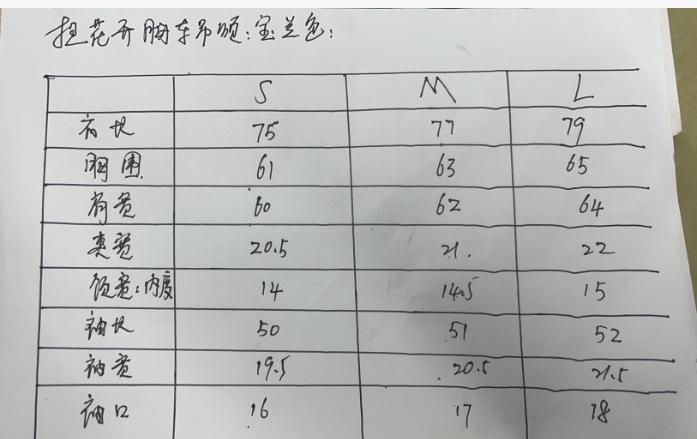 扭花开胸车吊领:宝兰色:
S M L
衫长 75 77 79
胸围 61 63 65
肩宽 60 62 64
夹宽 20.5 21. 22
领宽:内度 14 14.5 15
袖长 50 51 52
袖宽 19.5 20.5 21.5
袖口 16 17 18